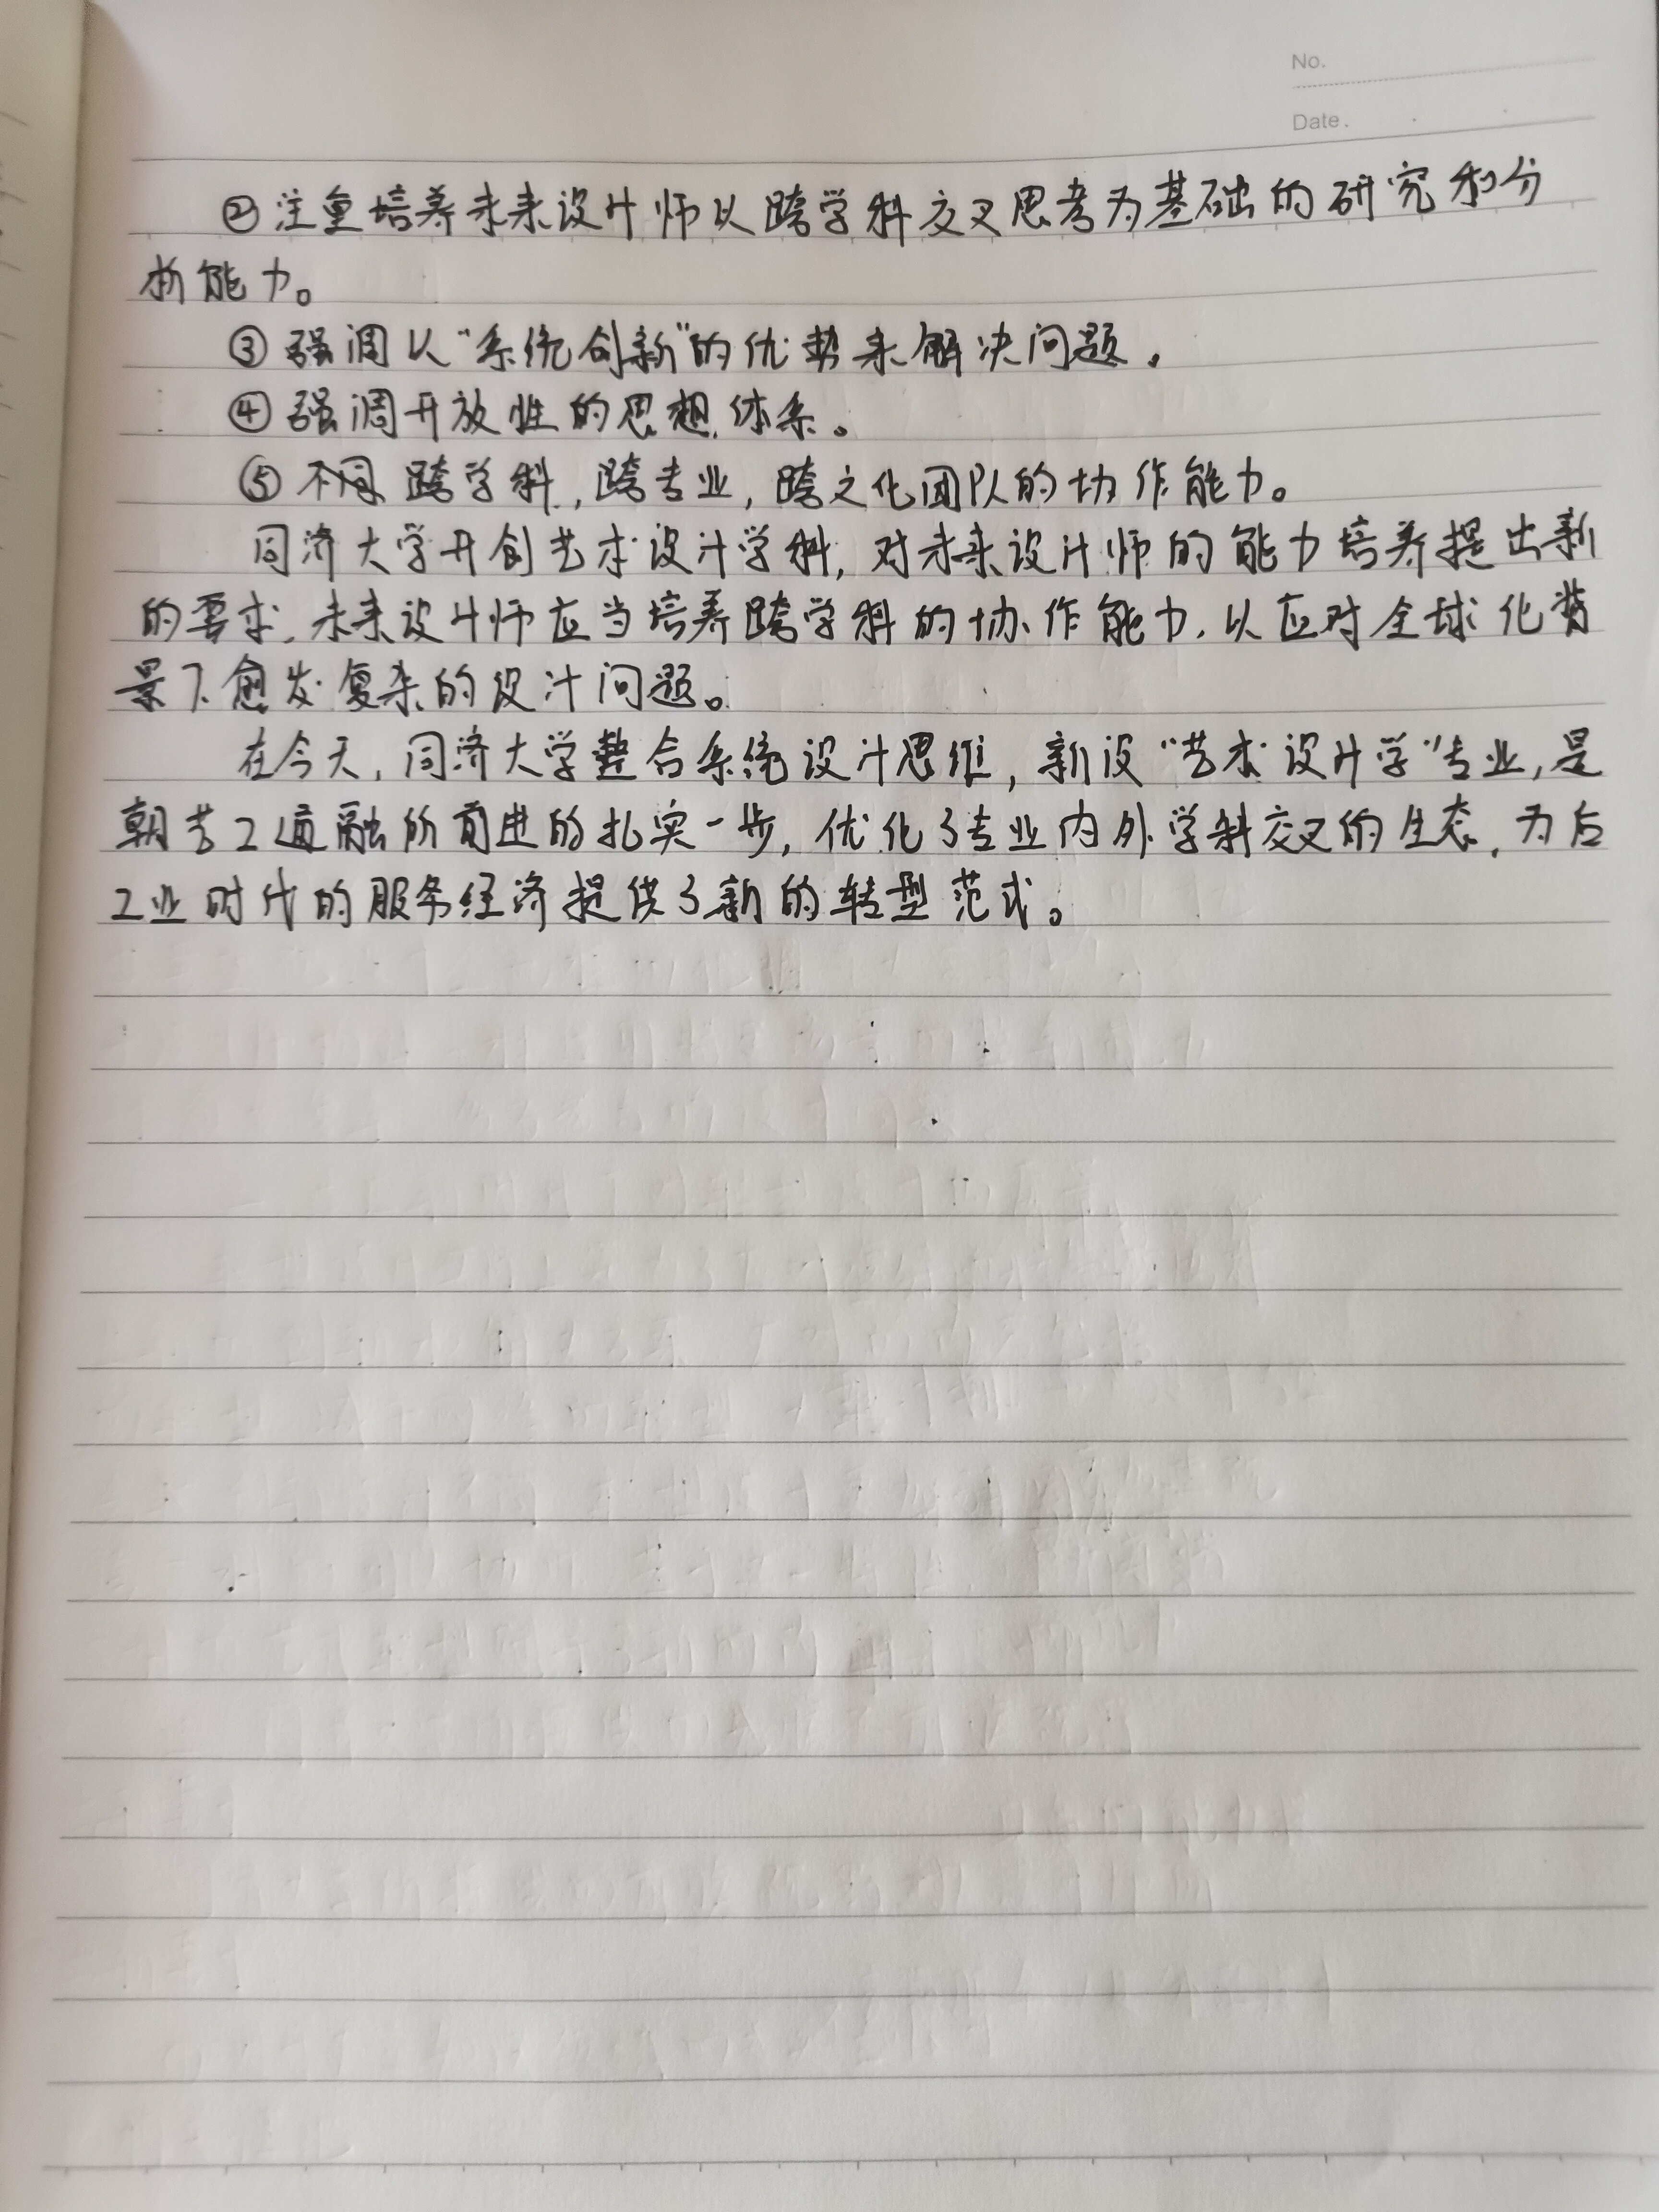 No.
Date.
②注重培养未来设计师以跨学科交叉思考为基础的研究和分
析能力。
③强调以“系统创新”的优势来解决问题。
④强调开放性的思想体系。
⑤不同跨学科,跨专业,跨文化团队的协作能力。
同济大学开创艺术设计学科,对未来设计师的能力培养提出新
的要求,未来设计师应当培养跨学科的协作能力,以应对全球化背
景下愈发复杂的设计问题。
在今天,同济大学整合系统设计思维,新设“艺术设计学”专业,是
朝艺工通融所前进的扎实一步,优化了专业内外学科交叉的生态,为后
工业时代的服务经济提供了新的转型范式。